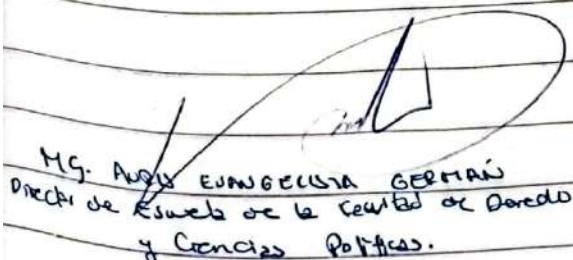 MG. EVANGELISTA GERMÁN
Director de Escuela de la Facultad de Derecho
y Ciencias Políticas.